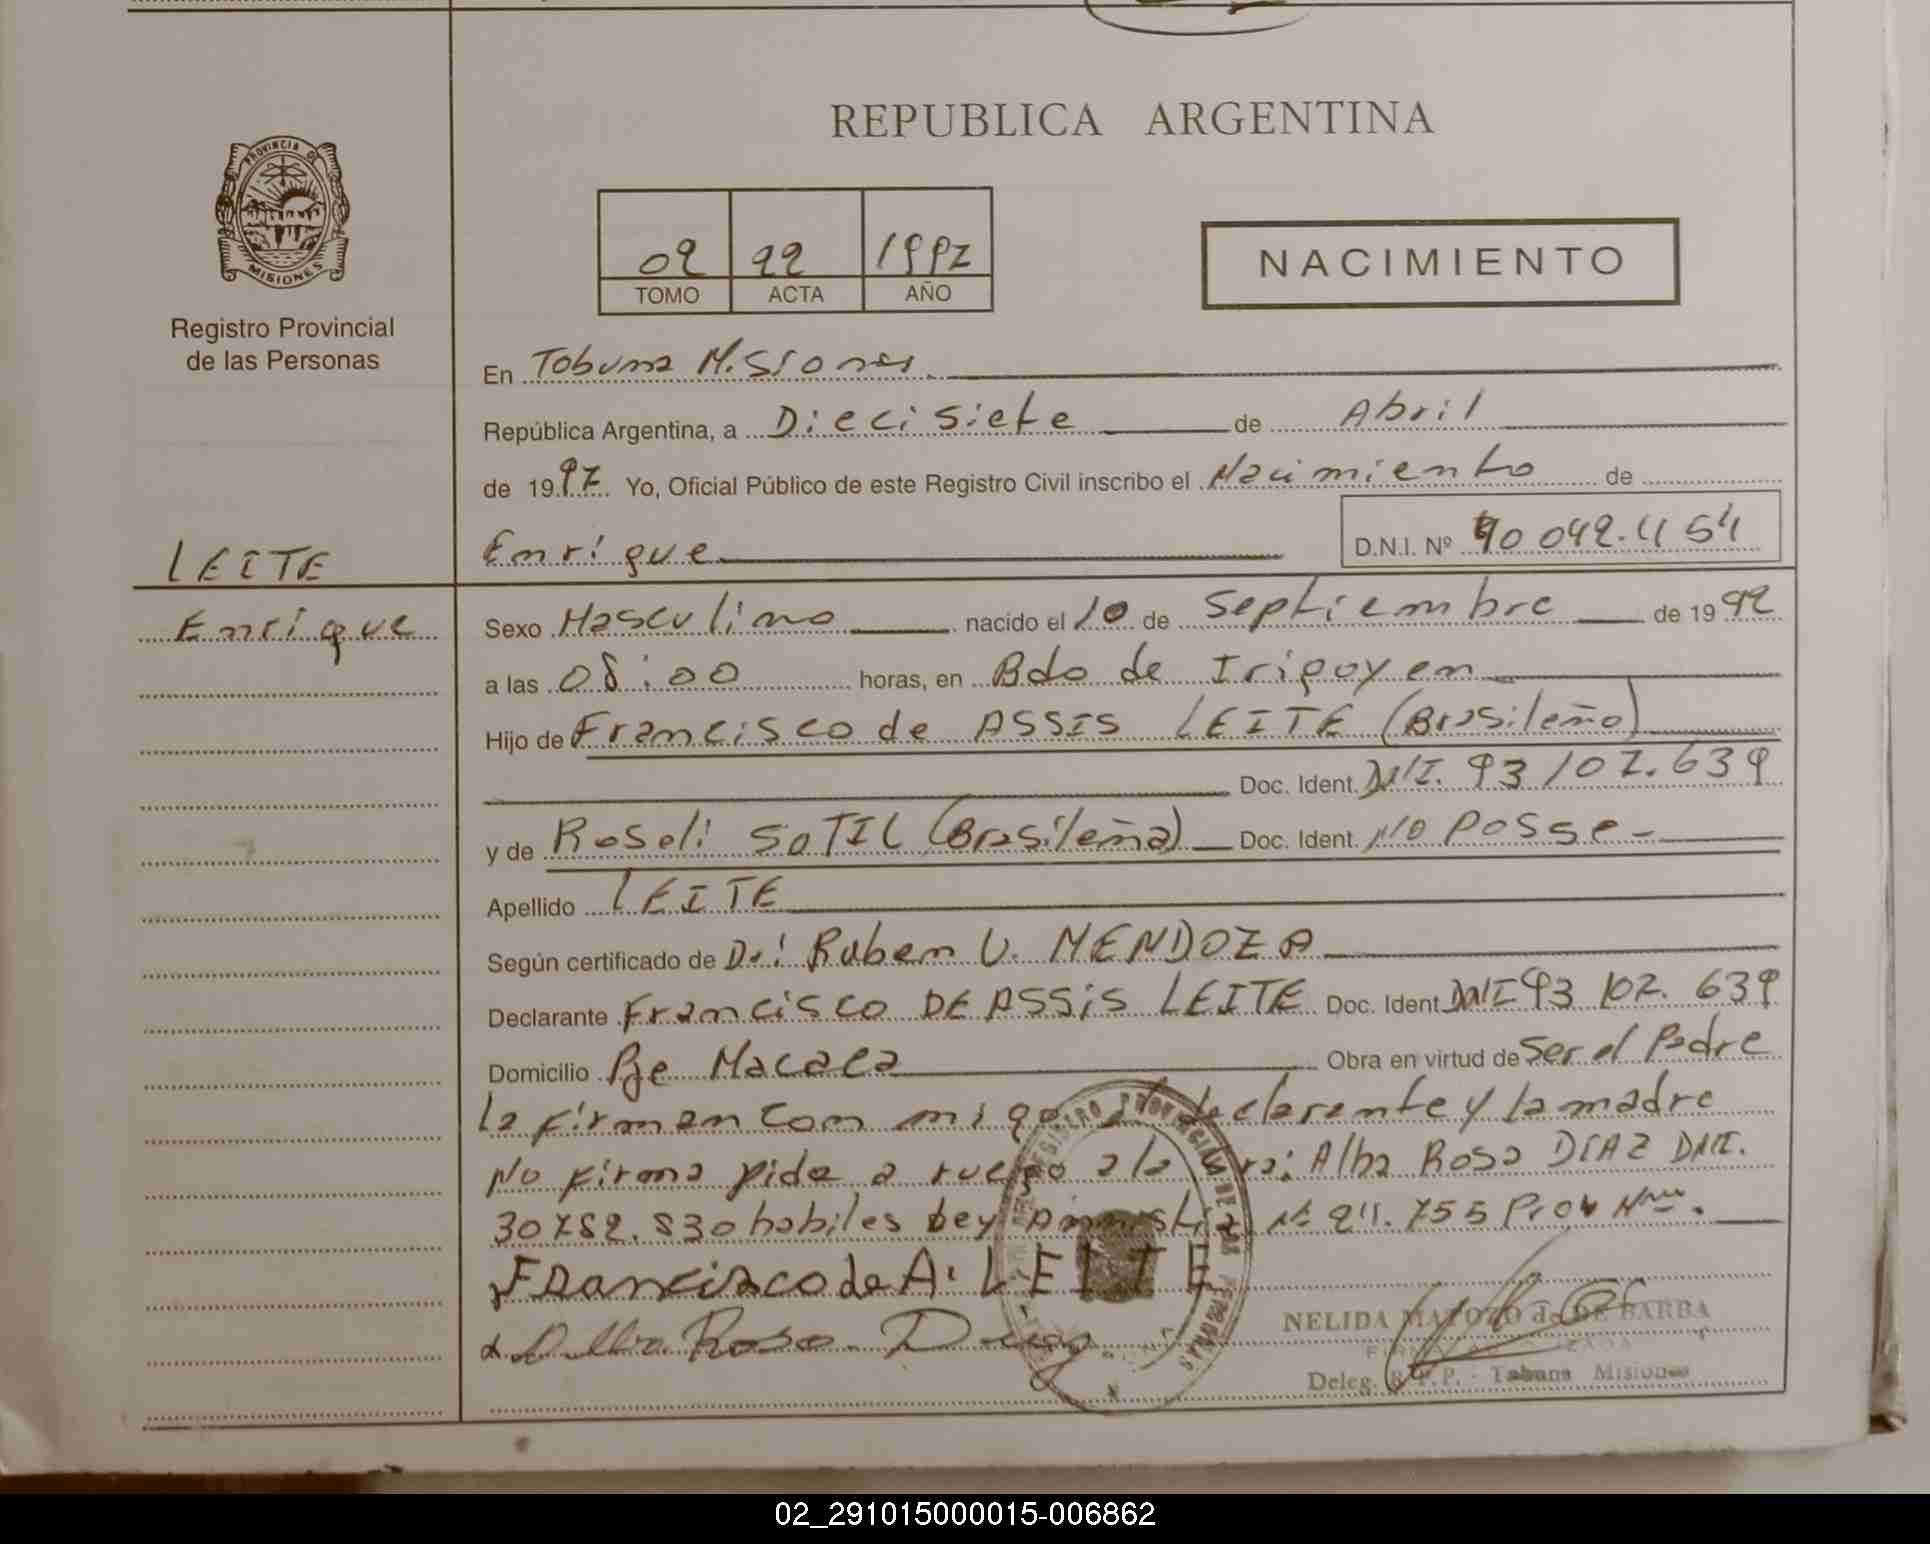 REPUBLICA ARGENTINA
PROVINCIA DE
MISIONES
Registro Provincial
de las Personas
02 22 1997
TOMO ACTA AÑO
NACIMIENTO
En Tobuna Misiones
República Argentina, a Diecisiete de Abril
de 1997. Yo, Oficial Público de este Registro Civil inscribo el Nacimiento de
LEITE
Enrique
Enrique D.N.I. Nº 40 042.454
Sexo Masculino nacido el 10 de Septiembre de 1992
a las 08:00 horas, en Bdo de Irigoyen
Hijo de Francisco de ASSIS LEITE (Brasileño)
Doc. Ident. DNI. 93 107.639
y de Roseli SOTIL (Brasileña) Doc. Ident. No Posse
Apellido LEITE
Según certificado de Dr: Ruben U. MENDOZA
Declarante Francisco DE ASSiS LEITE Doc. Ident. DNI 93 107.639
Domicilio Pje Macaca Obra en virtud de Ser el Padre
la firman con migo declarante y la madre
No firma pide a ruego a la Sra: Alba Rosa DIAZ DNI.
30782.830 habiles Ley Amnistia Nº 24.755
Francisco de A. LEITE
Alba Rosa Diaz
NELIDA DE BARBA
Deleg. R.P.P. - Tobuna Misiones
02_291015000015-006862